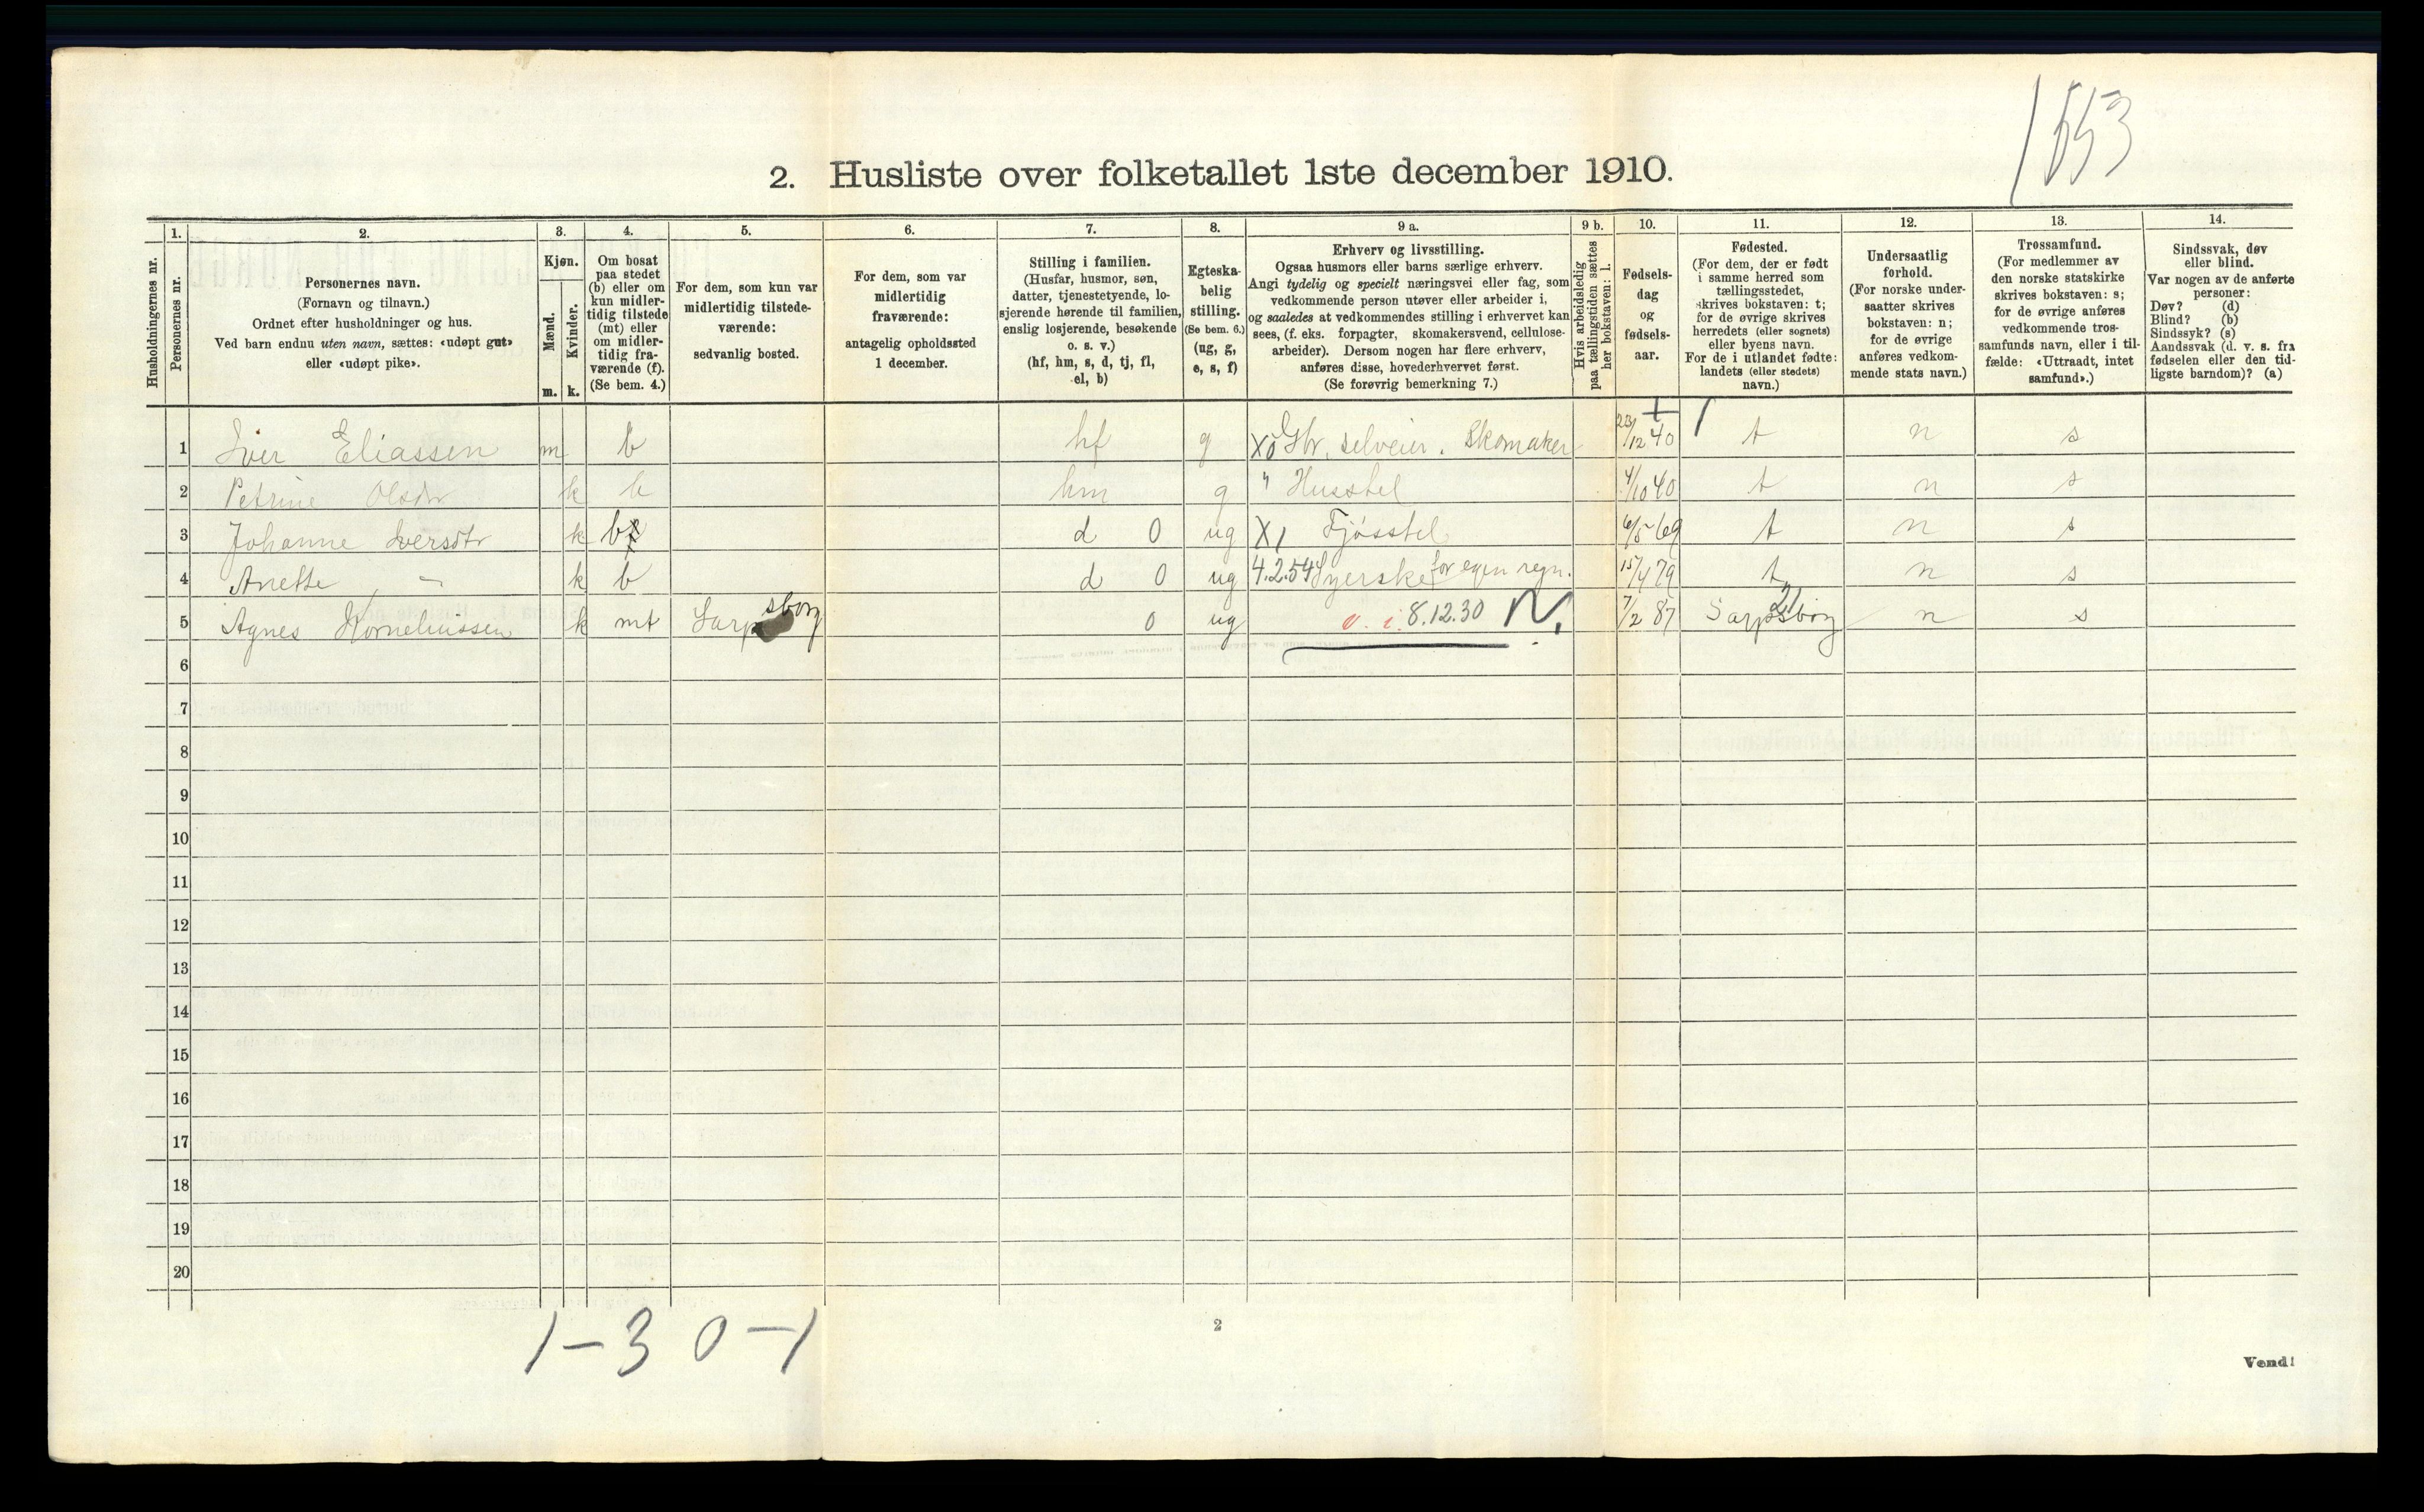 1653
2. Husliste over folketallet 1ste december 1910.
Husholdningernes nr.
1. Personernes nr.
2. Personernes navn.
(Fornavn og tilnavn.)
Ordnet efter husholdninger og hus.
Ved barn endnu uten navn, sættes: «udøpt gut»
eller «udøpt pike».
3. Kjøn.
Mænd. m.
Kvinder. k.
4. Om bosat
paa stedet
(b) eller om
kun midler-
tidig tilstede
(mt) eller
om midler-
tidig fra-
værende (f).
(Se bem. 4.)
5. For dem, som kun var
midlertidig tilstede-
værende:
sedvanlig bosted.
6. For dem, som var
midlertidig
fraværende:
antagelig opholdssted
1 december.
7. Stilling i familien.
(Husfar, husmor, søn,
datter, tjenestetyende, lo-
sjerende hørende til familien,
enslig losjerende, besøkende
o. s. v.)
(hf, hm, s, d, tj, fl,
el, b)
8. Egteska-
belig
stilling.
(Se bem. 6.)
(ug, g,
e, s, f)
9 a. Erhverv og livsstilling.
Ogsaa husmors eller barns særlige erhverv.
Angi tydelig og specielt næringsvei eller fag, som
vedkommende person utøver eller arbeider i,
og saaledes at vedkommendes stilling i erhvervet kan
sees, (f. eks. forpagter, skomakersvend, cellulose-
arbeider). Dersom nogen har flere erhverv,
anføres disse, hovederhvervet først.
(Se forøvrig bemerkning 7.)
9 b. Hvis arbeidsledig
paa tællingstiden sættes
her bokstaven: l.
10. Fødsels-
dag
og
fødsels-
aar.
11. Fødested.
(For dem, der er født
i samme herred som
tællingsstedet,
skrives bokstaven: t;
for de øvrige skrives
herredets (eller sognets)
eller byens navn.
For de i utlandet fødte:
landets (eller stedets)
navn.)
12. Undersaatlig
forhold.
(For norske under-
saatter skrives
bokstaven: n;
for de øvrige
anføres vedkom-
mende stats navn.)
13. Trossamfund.
(For medlemmer av
den norske statskirke
skrives bokstaven: s;
for de øvrige anføres
vedkommende tros-
samfunds navn, eller i til-
fælde: «Uttraadt, intet
samfund».)
14. Sindssvak, døv
eller blind.
Var nogen av de anførte
personer:
Døv? (d)
Blind? (b)
Sindssyk? (s)
Aandssvak (d. v. s. fra
fødselen eller den tid-
ligste barndom)? (a)
1 Iver Eliassen m b hf g X0 Gbr. selveier. Skomaker 23/12 40 t n s
2 Petrine Olsdtr k b hm g " Husstel 4/10 40 t n s
3 Johanne Iversdtr k b d 0 ug X1 Fjøsstel 6/5 69 t n s
4 Anette — k b d 0 ug 4.2.54 Syerske for egen regn. 15/4 79 t n s
5 Agnes Korneliussen k mt Sarpsborg 0 ug 8.12.30 N. 7/2 87 Sarpsborg n s
6
7
8
9
10
11
12
13
14
15
16
17
18
19
20
1 — 3 0 — 1
2
Vend!